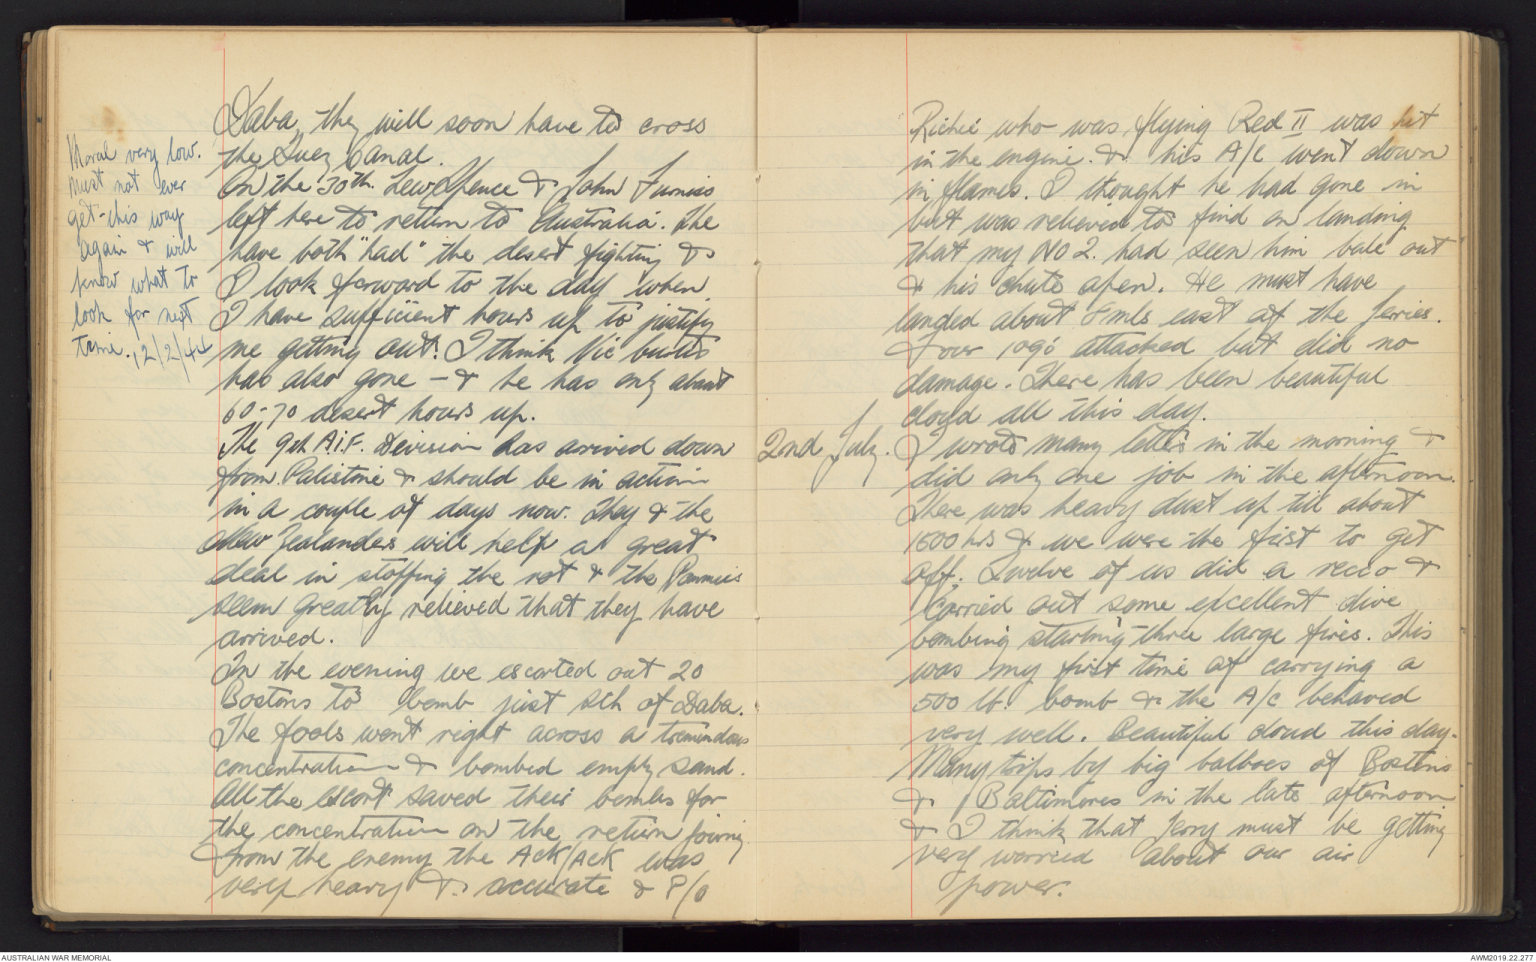 Moral very low.
Must not ever
get this way
again & will
know what to
look for next
time. 12/2/44
Daba, they will soon have to cross
the Suez Canal.
On the 30th. Lew Spence & John Furniss
left here to return to Australia. The
have both "had" the desert fighting &
I look forward to the day when
I have sufficient hours up to justify
me getting out. I think Vic
has also gone – & he has only about
60-70 desert hours up.
The 9th A.I.F. Division has arrived down
from Palistine & should be in action
in a couple of days now. They & the
New Zealanders will help a great
deal in stopping the rot & the Pommies
seem greatly relieved that they have
arrived.
In the evening we escorted out 20
Bostons to bomb just sth of Daba.
The fools went right across a tremendous
concentration & bombed empty sand.
All the escort saved their bombs for
the concentration on the return journy
from the enemy the Ack/Ack was
very heavy & accurate & P/O
Richie who was flying Red II was hit
in the engine. & his A/C went down
in flames. I thought he had gone in
but was relieved to find on landing
that my No 2. had seen him bale out
& his chute open. He must have
landed about mls east of the Jerries.
Four 109s attacked but did no
damage. There has been beautiful
cloud all this day.
2nd July. I wrote many letters in the morning &
did only one job in the afternoon.
There was heavy dust up till about
1500 hrs & we were the first to get
off. Twelve of us did a recco &
carried out some excellent dive
bombing starting three large fires. This
was my first time of carrying a
500 lb. bomb & the A/C behaved
very well. Beautiful cloud this day.
Many trips by big balboes of Bostons
& Baltimores in the late afternoon
& I think that Jerry must be getting
very worried about our air
power.
AUSTRALIAN WAR MEMORIAL
AWM2019.22.277